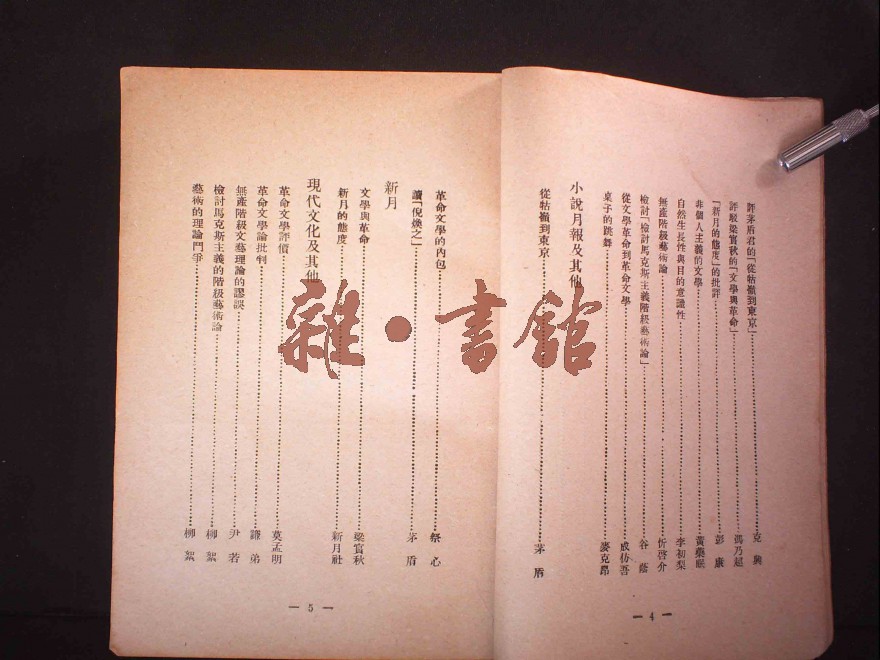 評茅盾君的「從牯嶺到東京」……克興
評駁梁實秋的「文學與革命」……馮乃超
「新月的態度」的批評……彭康
非個人主義的文學……黃藥眠
自然生長性與目的意識性……李初梨
無產階級藝術論……忻啓介
檢討「檢討馬克斯主義階級藝術論」……谷蔭
從文學革命到革命文學……成仿吾
桌子的跳舞……麥克昂
小說月報及其他
從牯嶺到東京……茅盾
— 4 —
革命文學的內包……祭心
讀「倪煥之」……茅盾
新月
文學與革命……梁實秋
新月的態度……新月社
現代文化及其他
革命文學評價……莫孟明
革命文學論批判……謙弟
無產階級文藝理論的謬誤……尹若
檢討馬克斯主義的階級藝術論……柳絮
藝術的理論鬥爭……柳絮
— 5 —
雜·書館